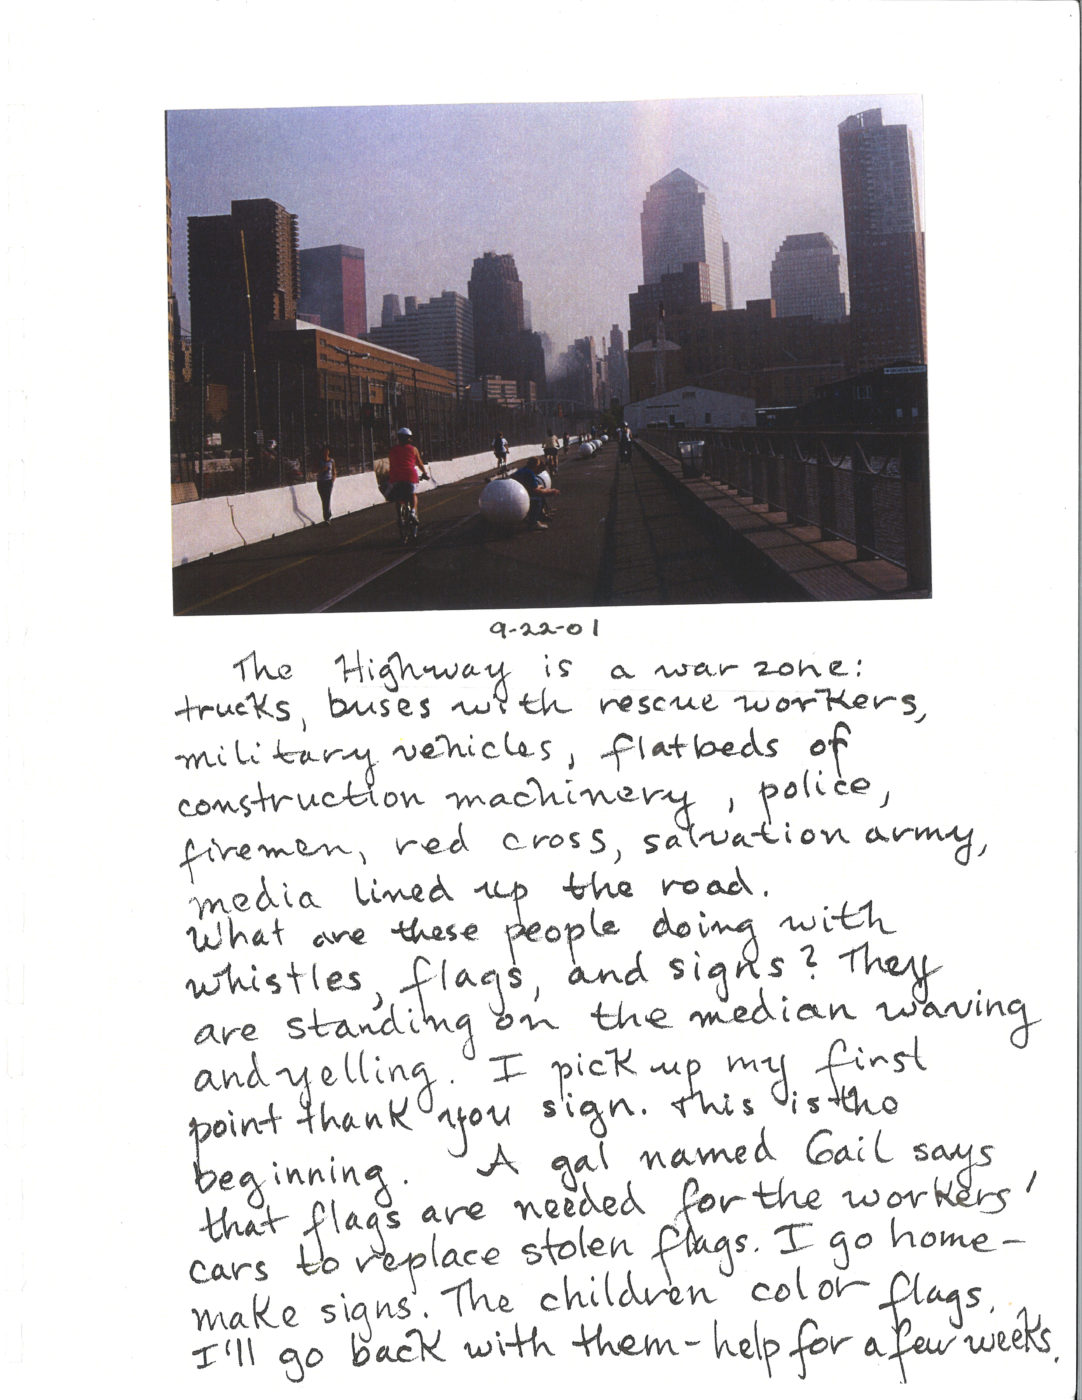 9-22-01
The Highway is a war zone:
trucks, buses with rescue workers,
military vehicles, flatbeds of
construction machinery, police,
firemen, red cross, salvation army,
media lined up the road.
What are these people doing with
whistles, flags, and signs? They
are standing on the median waving
and yelling. I pick up my first
point thank you sign. This is the
beginning. A gal named Gail says
that flags are needed for the workers'
cars to replace stolen flags. I go home-
make signs. The children color flags.
I'll go back with them-help for a few weeks.